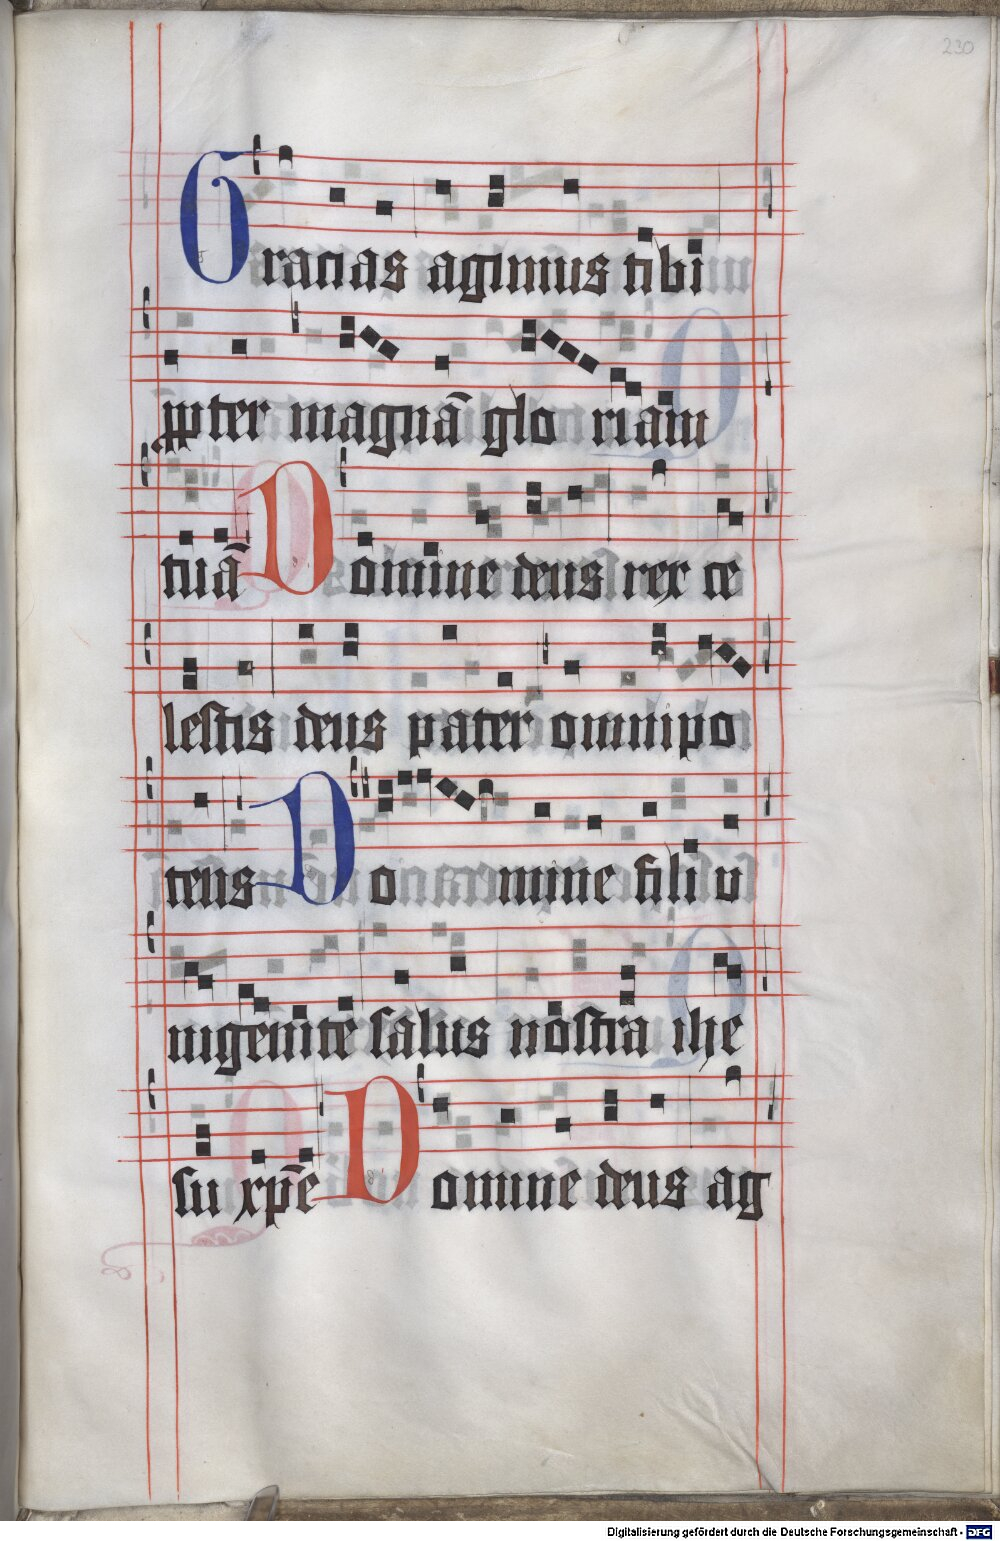 230
Gracias agimus tibi
ꝓpter magnā glo riam
tuā Domine deus rex ce
lestis deus pater omnipo
tens Do mine fili v
nigenite salus nostra ihe
su xp̄e Domine deus ag
Digitalisierung gefördert durch die Deutsche Forschungsgemeinschaft - DFG